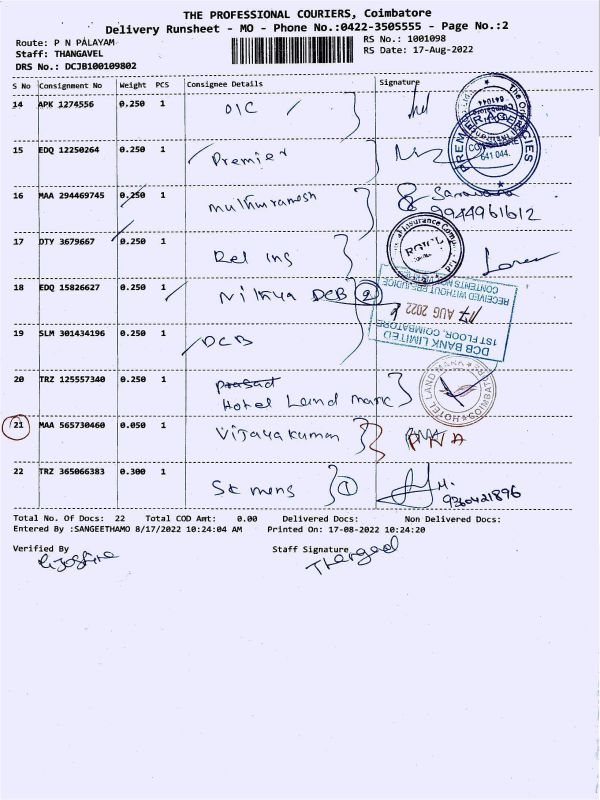 THE PROFESSIONAL COURIERS, Coimbatore
Delivery Runsheet - MO - Phone No.:0422-3505555 - Page No.:2
Route: P N PALAYAM
RS No.: 1001098
Staff: THANGAVEL
RS Date: 17-Aug-2022
DRS No.: DCJB100109802
S No Consignment No Weight PCS Consignee Details Signature
14 APK 1274556 0.250 1 OIC
15 EDQ 12250264 0.250 1 Premier
PREMIER AGENCIES
COIMBATORE
641 044.
16 MAA 294469745 0.250 1 muthuramesh
9944961612
17 DTY 3679667 0.250 1 Rel Ins
RGICL
18 EDQ 15826627 0.250 1 Nithya DCB 2
RECEIVED WITHOUT PREJUDICE
17 AUG 2022
1ST FLOOR, COIMBATORE
DCB BANK LIMITED
19 SLM 301434196 0.250 1 DCB
20 TRZ 125557340 0.250 1 Prasad
Hotel Land mark
HOTEL LAND MARK COIMBATORE
21 MAA 565730460 0.050 1 Vijayakumar
22 TRZ 365066383 0.300 1 1
Total No. Of Docs: 22 Total COD Amt: 0.00 Delivered Docs: Non Delivered Docs:
Entered By :SANGEETHAMO 8/17/2022 10:24:04 AM Printed On: 17-08-2022 10:24:20
Verified By Staff Signature